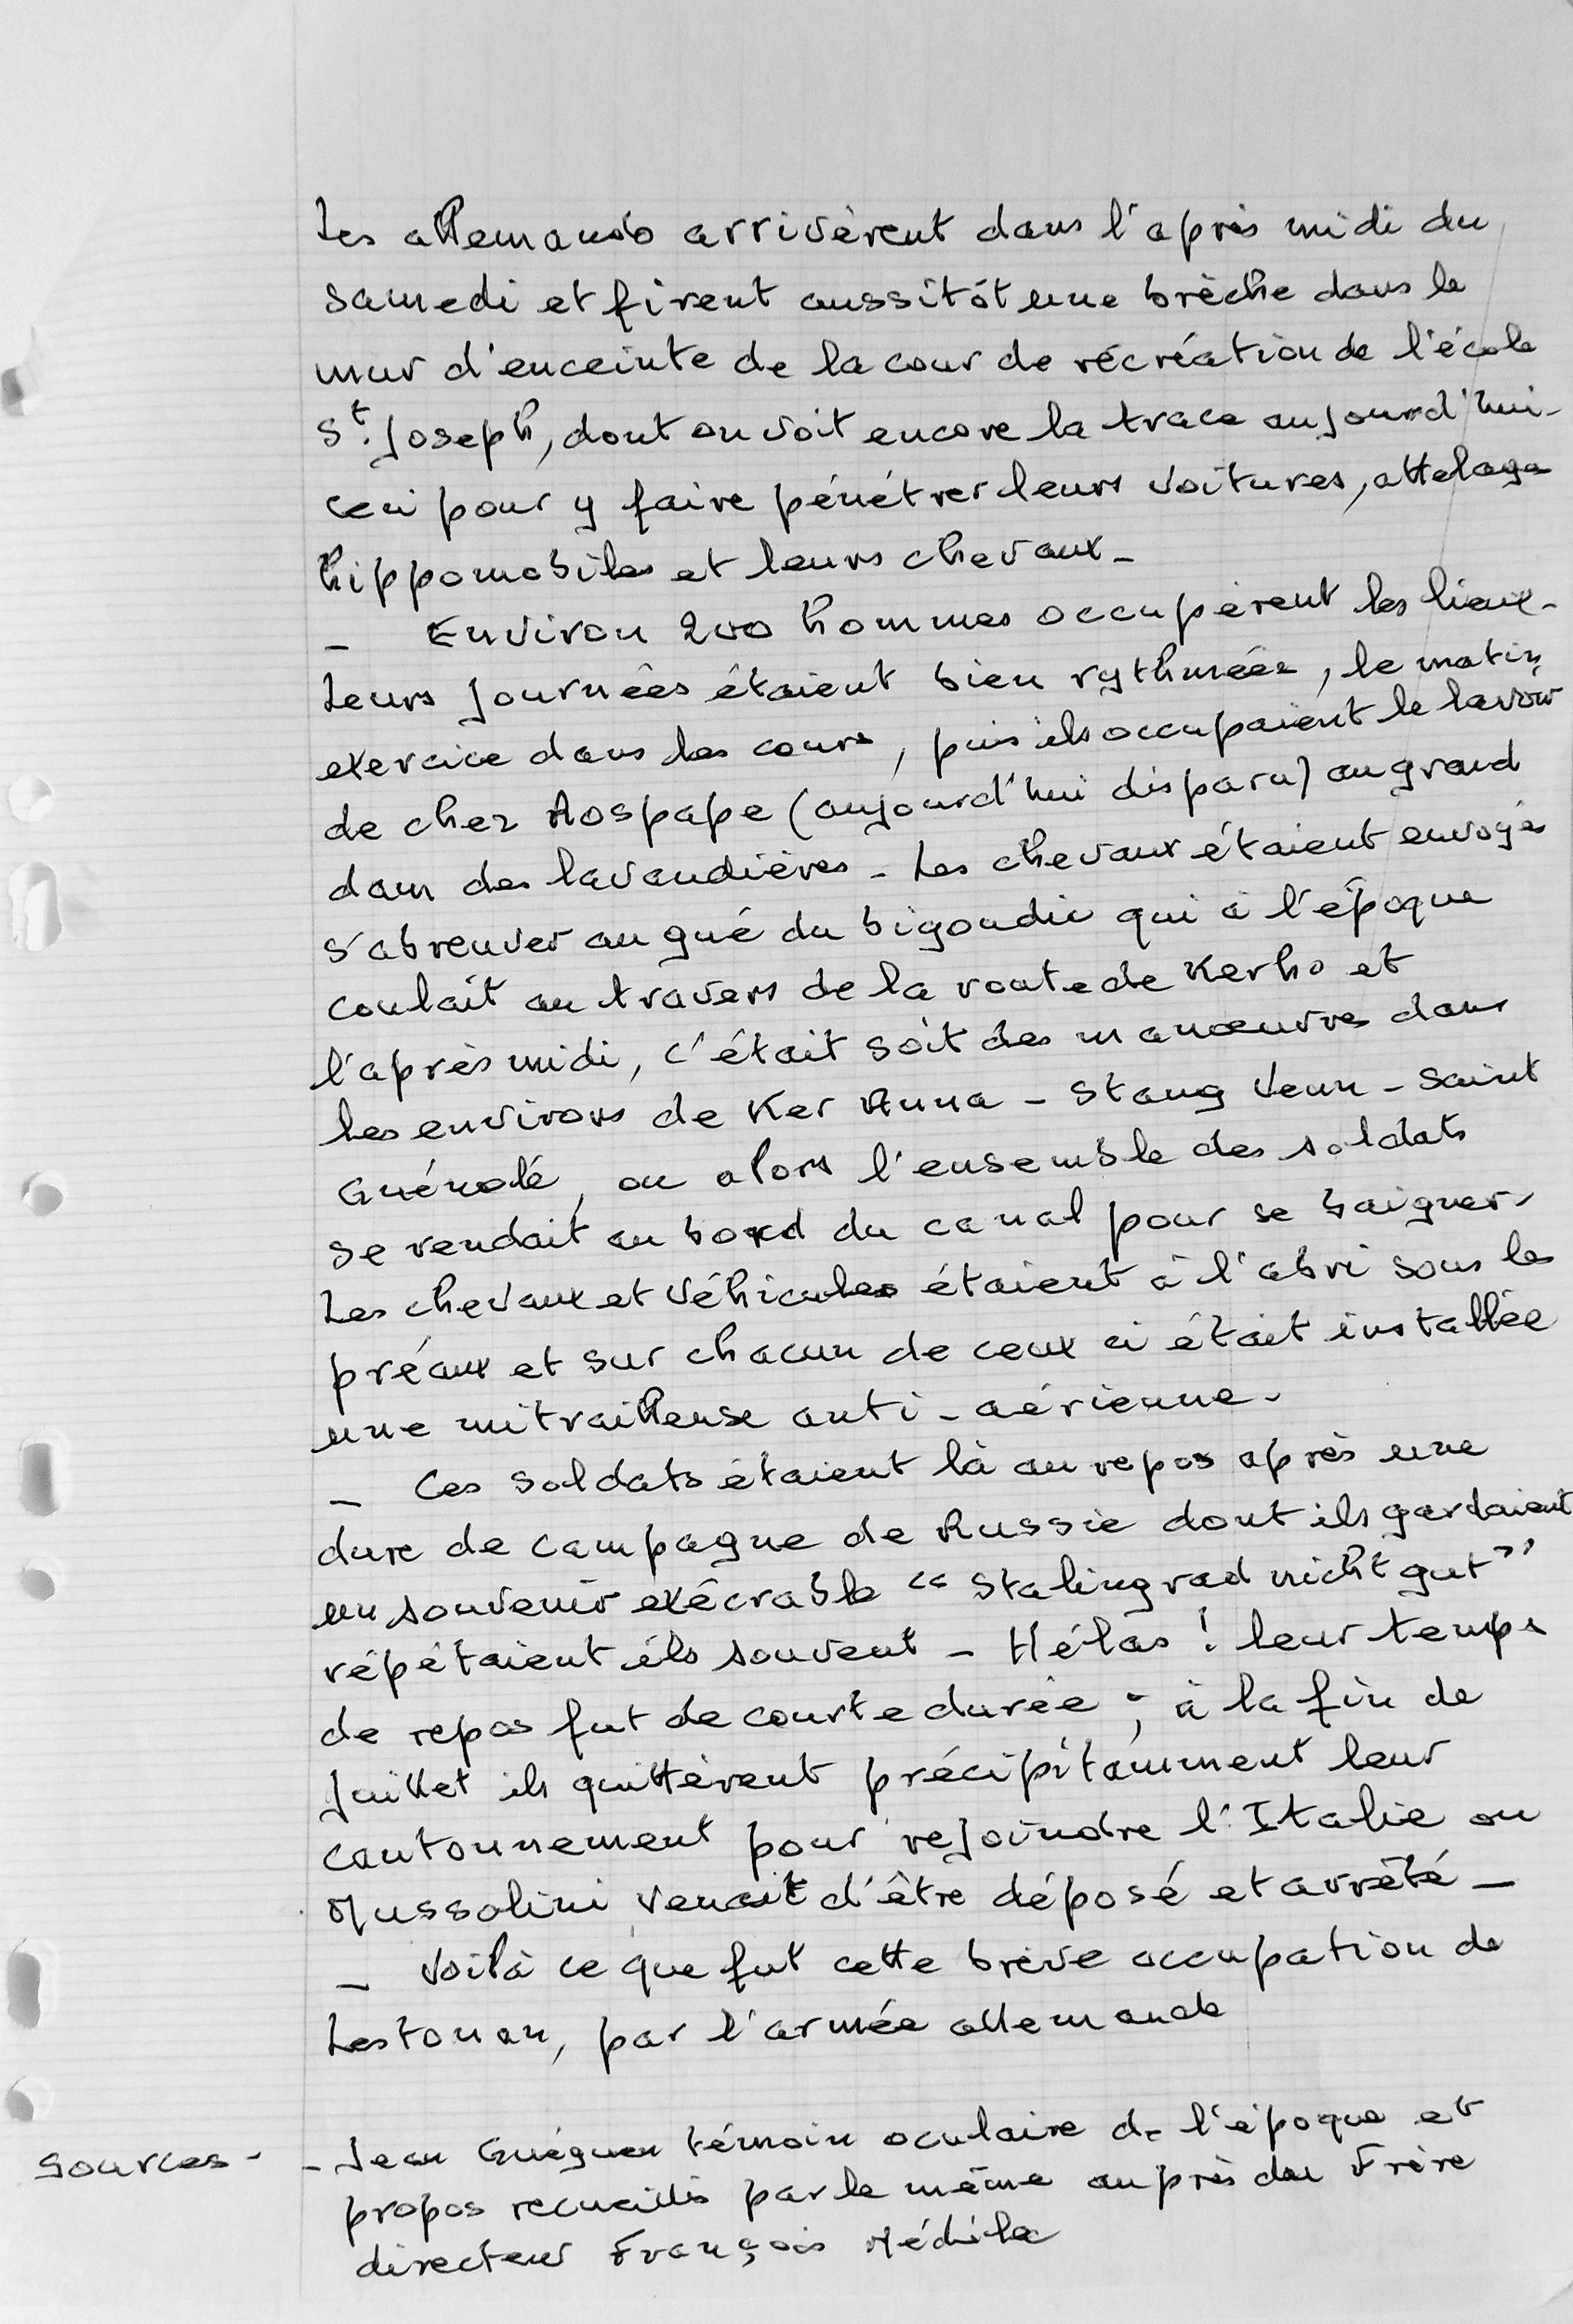 Les allemands arrivèrent dans l'après midi du
samedi et firent aussitôt une brèche dans le
mur d'enceinte de la cour de récréation de l'école
St. Joseph, dont on voit encore la trace aujourd'hui -
ceci pour y faire pénétrer leurs voitures, attelage
hippomobiles et leurs chevaux -
- Environ 200 hommes occupèrent les lieux -
Leurs journées étaient bien rythmées, le matin
exercice dans les cours, puis ils occupaient le lavoir
de chez Rospape (aujourd'hui disparu) au grand
dam des lavandières - Les chevaux étaient envoyés
s'abreuver au gué du bigoudic qui à l'époque
coulait au travers de la route de Kerho et
l'après midi, c'était soit des manœuvres dans
les environs de Ker Anna - Stang Venn - Saint
Guénolé, ou alors l'ensemble des soldats
se rendait au bord du canal pour se baigner -
Les chevaux et véhicules étaient à l'abri sous les
préaux et sur chacun de ceux ci était installée
une mitrailleuse anti-aérienne -
- Ces soldats étaient là au repos après une
dure de campagne de Russie dont ils gardaient
un souvenir exécrable "Stalingrad nicht gut"
répétaient ils souvent - Hélas ! leur temps
de repos fut de courte durée ; à la fin de
Juillet ils quittèrent précipitamment leur
cantonnement pour rejoindre l'Italie ou
Mussolini venait d'être déposé et arrêté -
- Voilà ce que fut cette brève occupation de
Lestonan, par l'armée allemande
Sources - - Jean Guéguen témoin oculaire de l'époque et
propos recueillis par le même auprès du Frère
directeur François Médélec